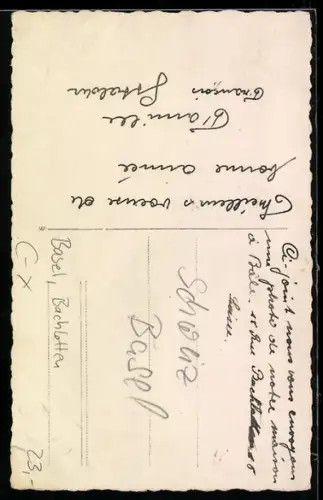 Meilleurs voeux de
bonne année
Famille
François
Ci-joint nous vous envoyons
une photo de notre maison
à Bâle.
Suisse.
Schweiz
Basel
Basel, Bachletten
C-X
23,-